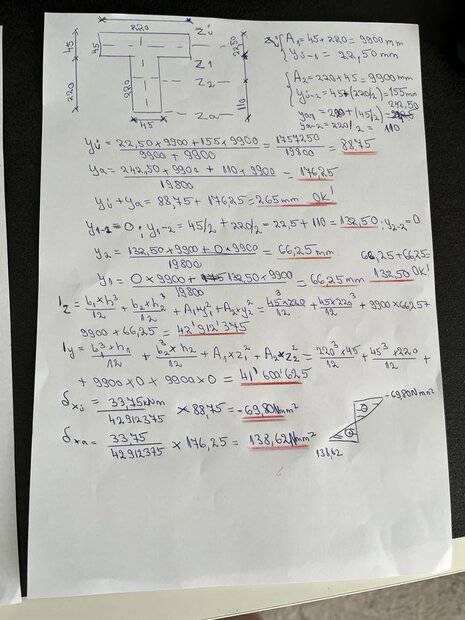 220
45
45
220
220
45
Zü
Z1
Z2
Za
22,50
22,5
110
A₁ = 45*220 = 9900 mm
yü-1 = 22,50 mm
A₂ = 220*45 = 9900 mm
yü-2 = 45+(220/2) = 155mm
242,50
ya-2 = 220/2 = 110
yü = 22,50*9900+155*9900 / 9900+9900 = 1757250 / 19800 = 88,75
ya = 242,50*9900+110*9900 / 19800 = 176,25
yü + ya = 88,75 + 176,25 = 265mm OK!
y1-2 = 0 ; y1-2 = 45/2 + 220/2 = 22,5 + 110 = 132,50 ; y2-2 = 0
y2 = 132,50*9900+0*9900 / 19800 = 66,25mm
66,25+66,25=
y1 = 0*9900+132,50*9900 / 19800 = 66,25mm
132,50 OK!
Iz = b₁*h³/12 + b₂*h₂³/12 + A₁*y₁² + A₂*y₂² = 45³*220/12 + 45*220³/12 + 9900*66,25+
9900+66,25 = 42'912'375
Iy = b³*h₁/12 + b₂³*h₂/12 + A₁*z₁² + A₂*z₂² = 220³*45/12 + 45³*220/12 +
+ 9900*0 + 9900*0 = 41'600'625
δxü = 33,75kNm / 42912375 * 88,75 = -69,80Nmm²
-69,80Nmm²
δxa = 33,75 / 42912375 * 176,25 = 138,62Nmm²
138,62